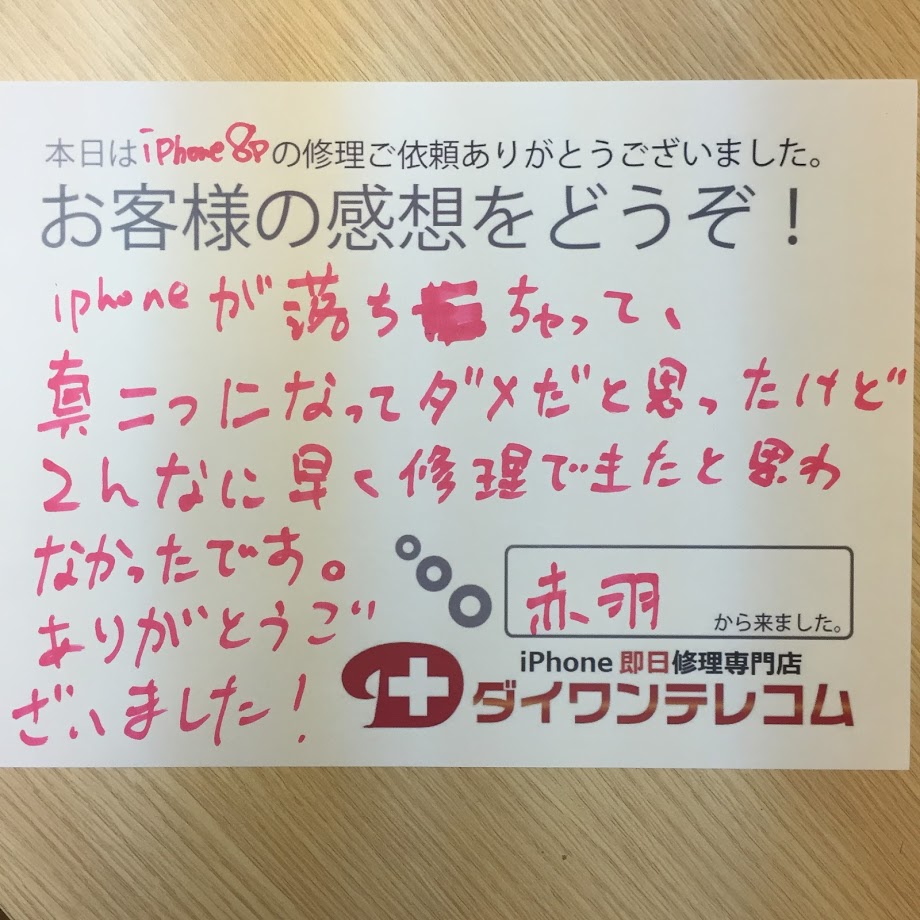 本日はiPhone8Pの修理ご依頼ありがとうございました。
お客様の感想をどうぞ！
iphoneが落ちちゃって、
真二つになってダメだと思ったけど
こんなに早く修理できたと思わ
なかったです。
ありがとうご
ざいました！
赤羽から来ました。
iPhone 即日修理専門店
ダイワンテレコム